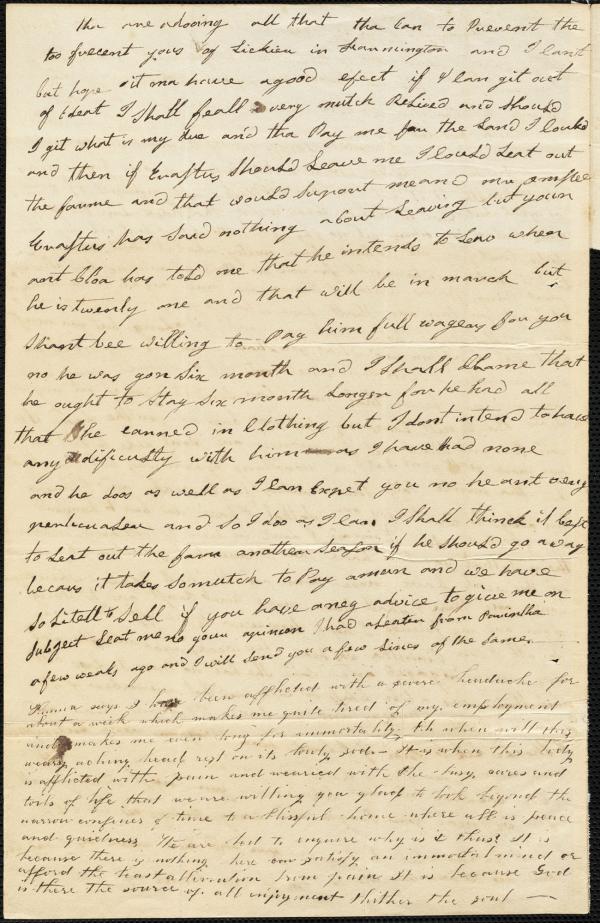 tha are adooing all that tha Can to Prevent the
too frecent yous of Lickier in Farmington and I cant
but hope it ma have agood efect if I Can git out
of Debt I shall feall very mutch Relived and should
I git what is my due and tha Pay me for the Land I Could
and then if Erastus Should Leave me I Could Leat out
the farme and that would Suport me and my
Erastus has Said nothing about Leaving but your
ant Cloa has told me that he intends to Leav when
he is twenty one and that will be in march but
I shant bee willing to Pay him full wageas for you
no he was gon Six month and I shall Clame that
he ought to Stay Six month Longer for he had all
that he earned in Clothing but I dont intend to have
any dificulty with him as I have had none
and he doos as well as I Can Expet you no he ant very
perticualer and so I doo as I Can I Shall thinck it best
to Leat out the farm another season if he should go away
becaus it takes so mutch to Pay aman and we have
so Litell to Sell if you have aney advice to give me on
subject Leat me no your apinion I had a Leater from
a few weaks ago and I will send you a few Lines of the Same
says I have been afflicted with a severe headache for
about a week which makes me quite tired of my employment
and makes me even long for immortality Oh when will this
weary aching head rest on its God It is when this body
is afflicted with pain and wearied with the busy cares and
toils of life that we are willing yea glad to look beyond the
narrow confines of time to a blissful home where all is peace
and quietness We are led to enquire why is it thus? It is
because there is nothing here can satisfy an immortal mind or
afford the least alleviation from pain It is because God
is there the source of all enjoyment thither the soul —